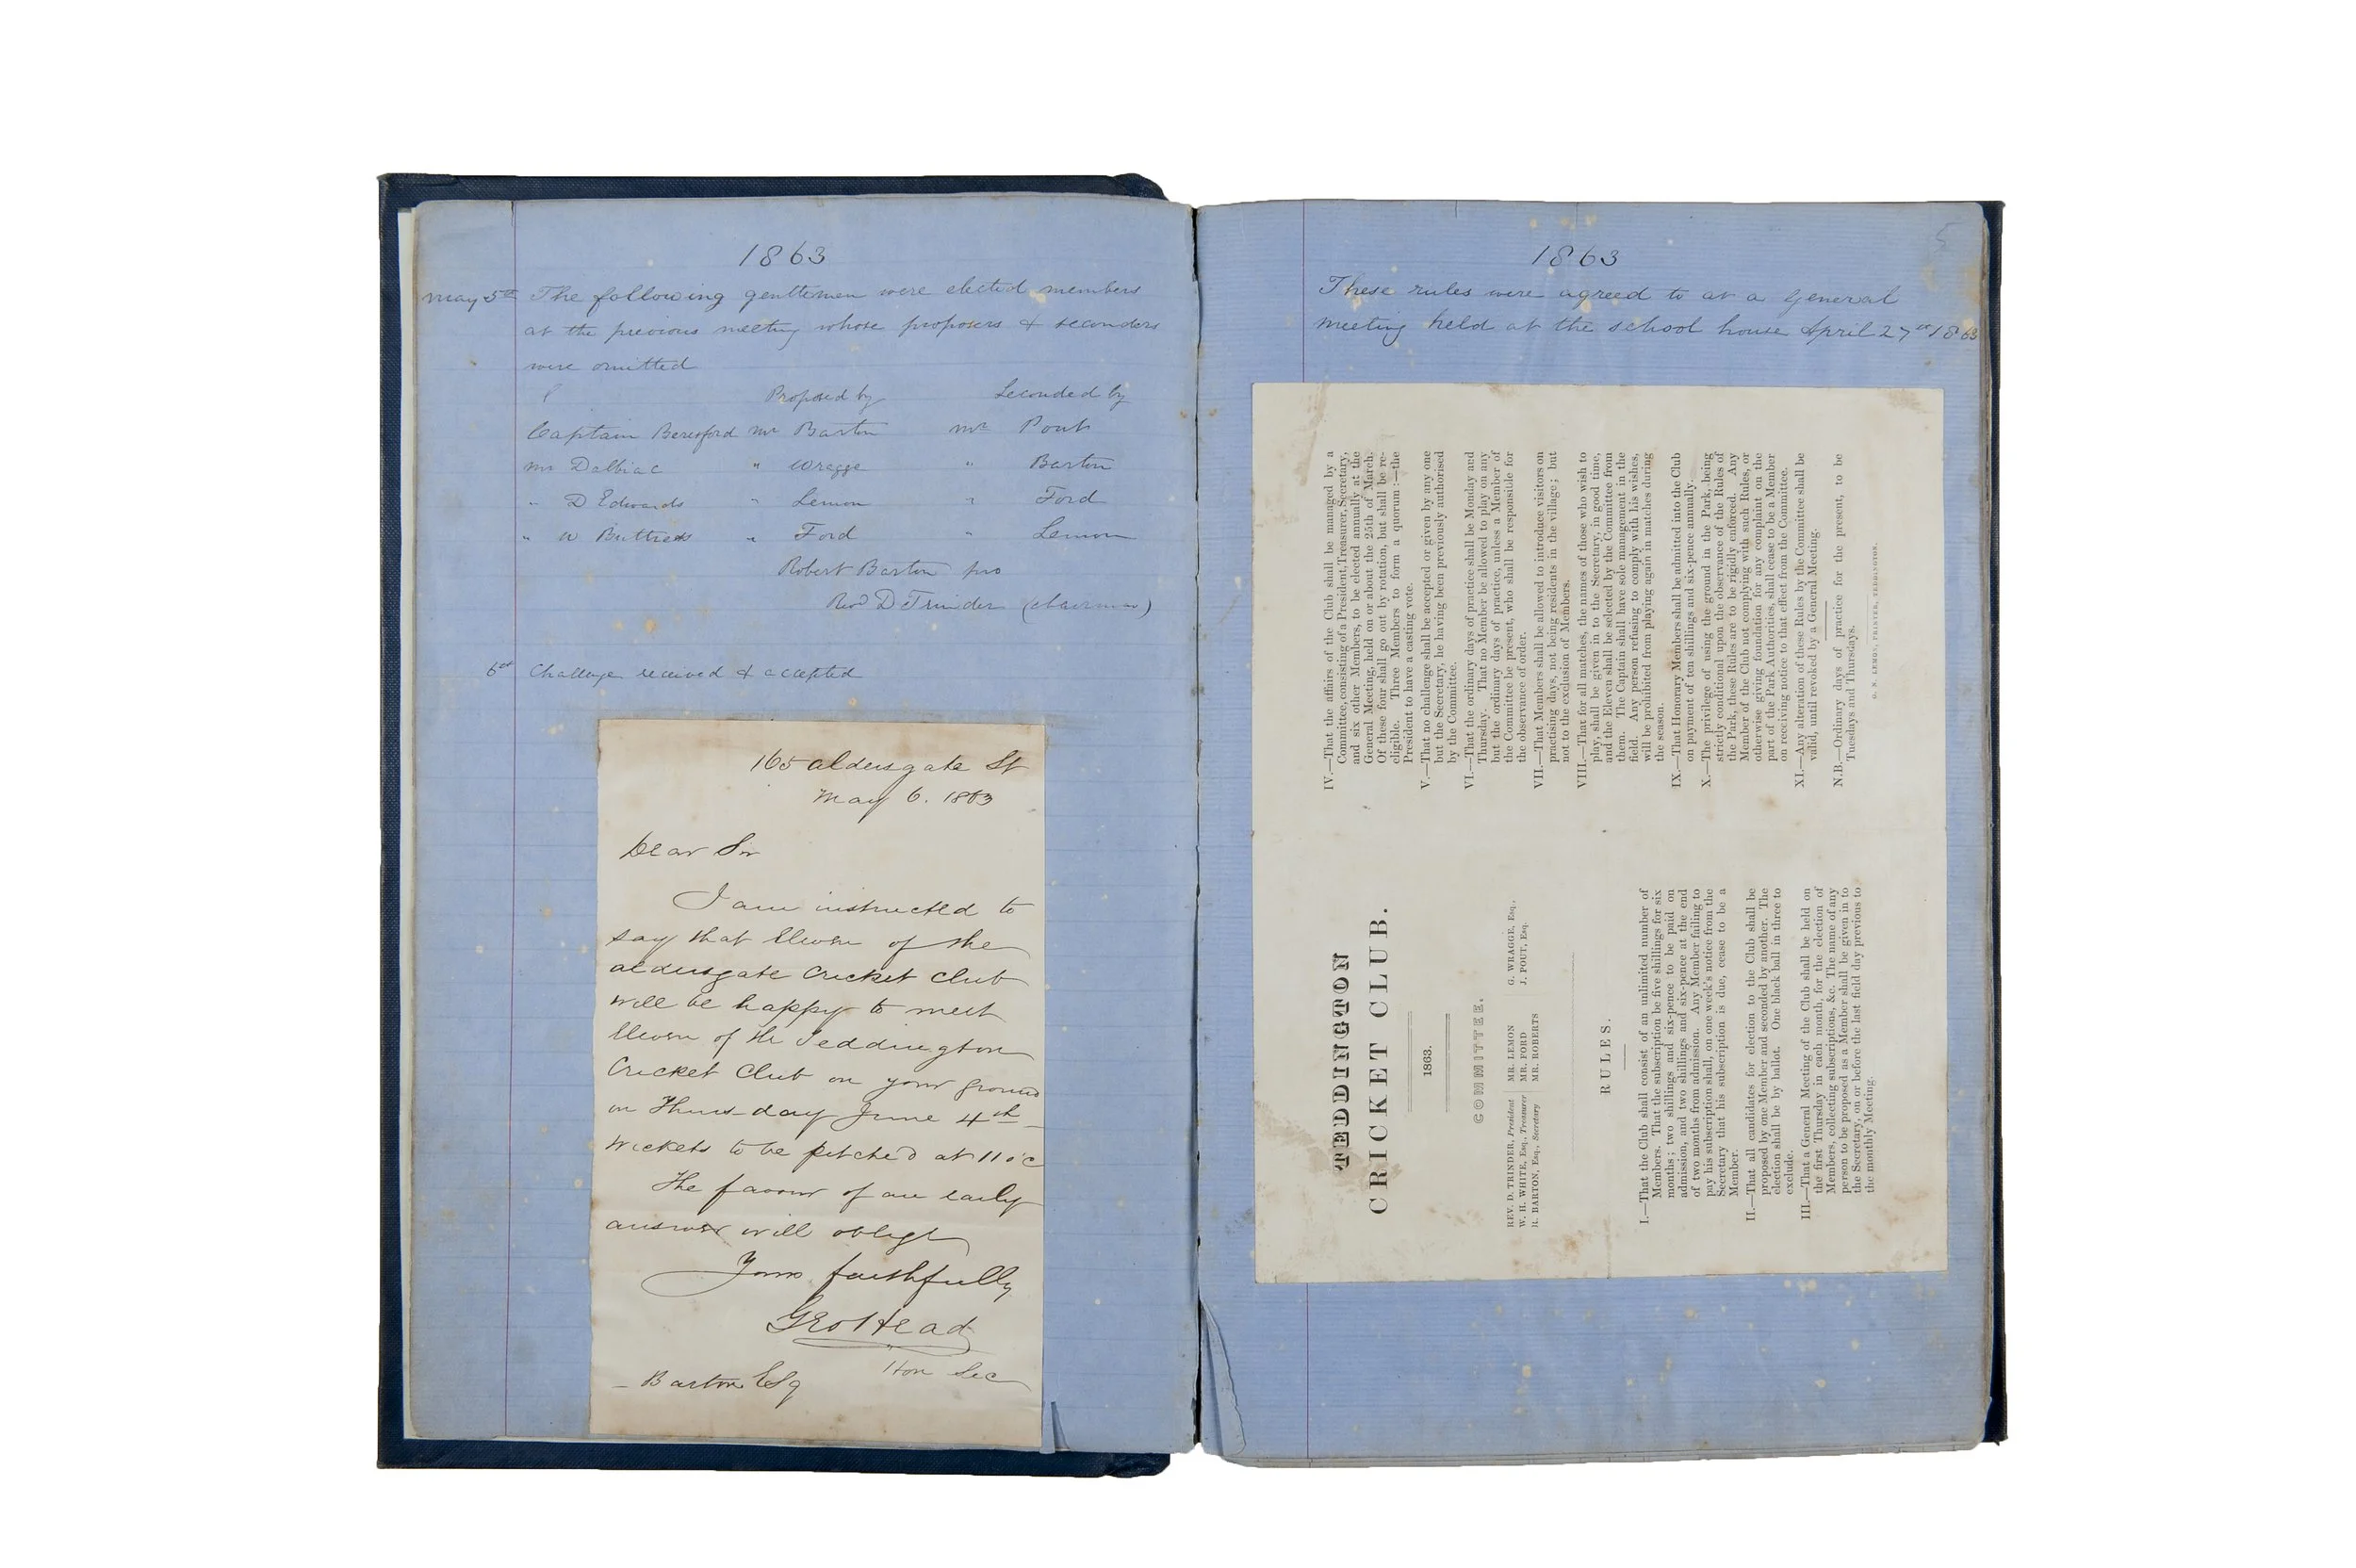 1863
May 5th The following gentlemen were elected members
at the previous meeting whose proposers & seconders
were omitted
Proposed by Seconded by
Captain Beresford Mr Barton Mr Pout
Mr Dalbiac " Wragge " Barton
" D Edwards " Lemon " Ford
" W Buttress " Ford " Lemon
Robert Barton pro
Revd D Trinder (chairman)
6th Challenge received & accepted
165 Aldersgate St
May 6. 1863
Dear Sir
I am instructed to
say that Eleven of the
Aldersgate Cricket Club
will be happy to meet
Eleven of the Teddington
Cricket Club on your ground
on Thursday June 4th
Wickets to be pitched at 11 oc
The favour of an early
answer will oblige
Yours faithfully
Geo Head
Hon Sec
— Barton Esq
5
1863
These rules were agreed to at a General
meeting held at the school house April 27th 1863
TEDDINGTON
CRICKET CLUB.
1863.
COMMITTEE.
REV. D. TRINDER, President MR. LEMON G. WRAGGE, Esq.,
W. H. WHITE, Esq., Treasurer MR. FORD J. POUT, Esq.
R. BARTON, Esq., Secretary MR. ROBERTS
RULES.
I.—That the Club shall consist of an unlimited number of
Members. That the subscription be five shillings for six
months; two shillings and six-pence to be paid on
admission, and two shillings and six-pence at the end
of two months from admission. Any Member failing to
pay his subscription shall, on one week's notice from the
Secretary that his subscription is due, cease to be a
Member.
II.—That all candidates for election to the Club shall be
proposed by one Member and seconded by another. The
election shall be by ballot. One black ball in three to
exclude.
III.—That a General Meeting of the Club shall be held on
the first Thursday in each month, for the election of
Members, collecting subscriptions, &c. The name of any
person to be proposed as a Member shall be given in to
the Secretary, on or before the last field day previous to
the monthly Meeting.
IV.—That the affairs of the Club shall be managed by a
Committee, consisting of a President, Treasurer, Secretary,
and six other Members, to be elected annually at the
General Meeting, held on or about the 25th of March.
Of these four shall go out by rotation, but shall be re-
eligible. Three Members to form a quorum:—the
President to have a casting vote.
V.—That no challenge shall be accepted or given by any one
but the Secretary, he having been previously authorised
by the Committee.
VI.—That the ordinary days of practice shall be Monday and
Thursday. That no Member be allowed to play on any
but the ordinary days of practice, unless a Member of
the Committee be present, who shall be responsible for
the observance of order.
VII.—That Members shall be allowed to introduce visitors on
practising days, not being residents in the village; but
not to the exclusion of Members.
VIII.—That for all matches, the names of those who wish to
play, shall be given in to the Secretary, in good time,
and the Eleven shall be selected by the Committee from
them. The Captain shall have sole management in the
field. Any person refusing to comply with his wishes,
will be prohibited from playing again in matches during
the season.
IX.—That Honorary Members shall be admitted into the Club
on payment of ten shillings and six-pence annually.
X.—The privilege of using the ground in the Park, being
strictly conditional upon the observance of the Rules of
the Park, these Rules are to be rigidly enforced. Any
Member of the Club not complying with such Rules, or
otherwise giving foundation for any complaint on the
part of the Park Authorities, shall cease to be a Member
on receiving notice to that effect from the Committee.
XI.—Any alteration of these Rules by the Committee shall be
valid, until revoked by a General Meeting.
N.B.—Ordinary days of practice for the present, to be
Tuesdays and Thursdays.
G. N. LEMON, PRINTER, TEDDINGTON.